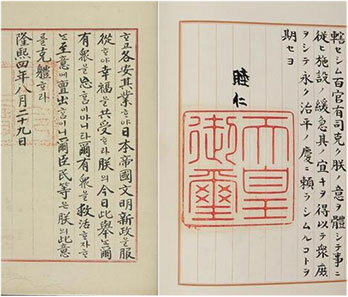 轄セシム百官有司克ク朕ノ意ヲ體シテ事ニ
從ヒ施設ノ緩急其ノ宜キヲ得以テ衆庶
ヲシテ永ク治平ノ慶ニ頼ラシムルコトヲ
期セヨ
睦仁
天皇
御璽
ᄒᆞ고各安其業ᄒᆞ야日本帝國文明新政을服
從ᄒᆞ야幸福을共受ᄒᆞ라朕의今日此擧ᄂᆞᆫ爾
有衆을忘홈이아니라爾有衆을救活ᄒᆞ자ᄒᆞ
ᄂᆞᆫ至意에亶出홈이니爾臣民等은朕의此意
를克體ᄒᆞ라
隆熙四年八月二十九日